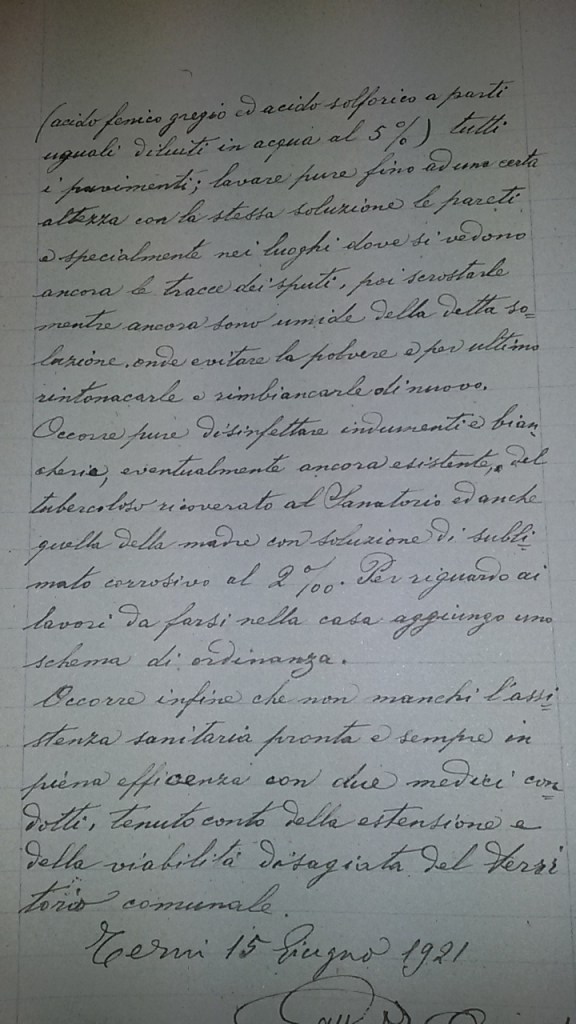 (acido fenico gregio ed acido solforico a parti
uguali diluiti in acqua al 5 %) tutti
i pavimenti; lavare pure fino ad una certa
altezza con la stessa soluzione le pareti
e specialmente nei luoghi dove si vedono
ancora le tracce dei sputi, poi scrostarle
mentre ancora sono umide della detta so=
luzione, onde evitare la polvere e per ultimo
rintonacarle e rimbiancarle di nuovo.
Occorre pure disinfettare indumenti e bian=
cheria, eventualmente ancora esistente, del
tubercoloso ricoverato al Sanatorio ed anche
quella della madre con soluzione di subli=
mato corrosivo al 2 ‰. Per riguardo ai
lavori da farsi nella casa aggiungo uno
schema di ordinanza.
Occorre infine che non manchi l'assi=
stenza sanitaria pronta e sempre in
piena efficenza con due medici con=
dotti, tenuto conto della estensione e
della viabilità disagiata del terri
torio comunale.
Terni 15 Giugno 1921